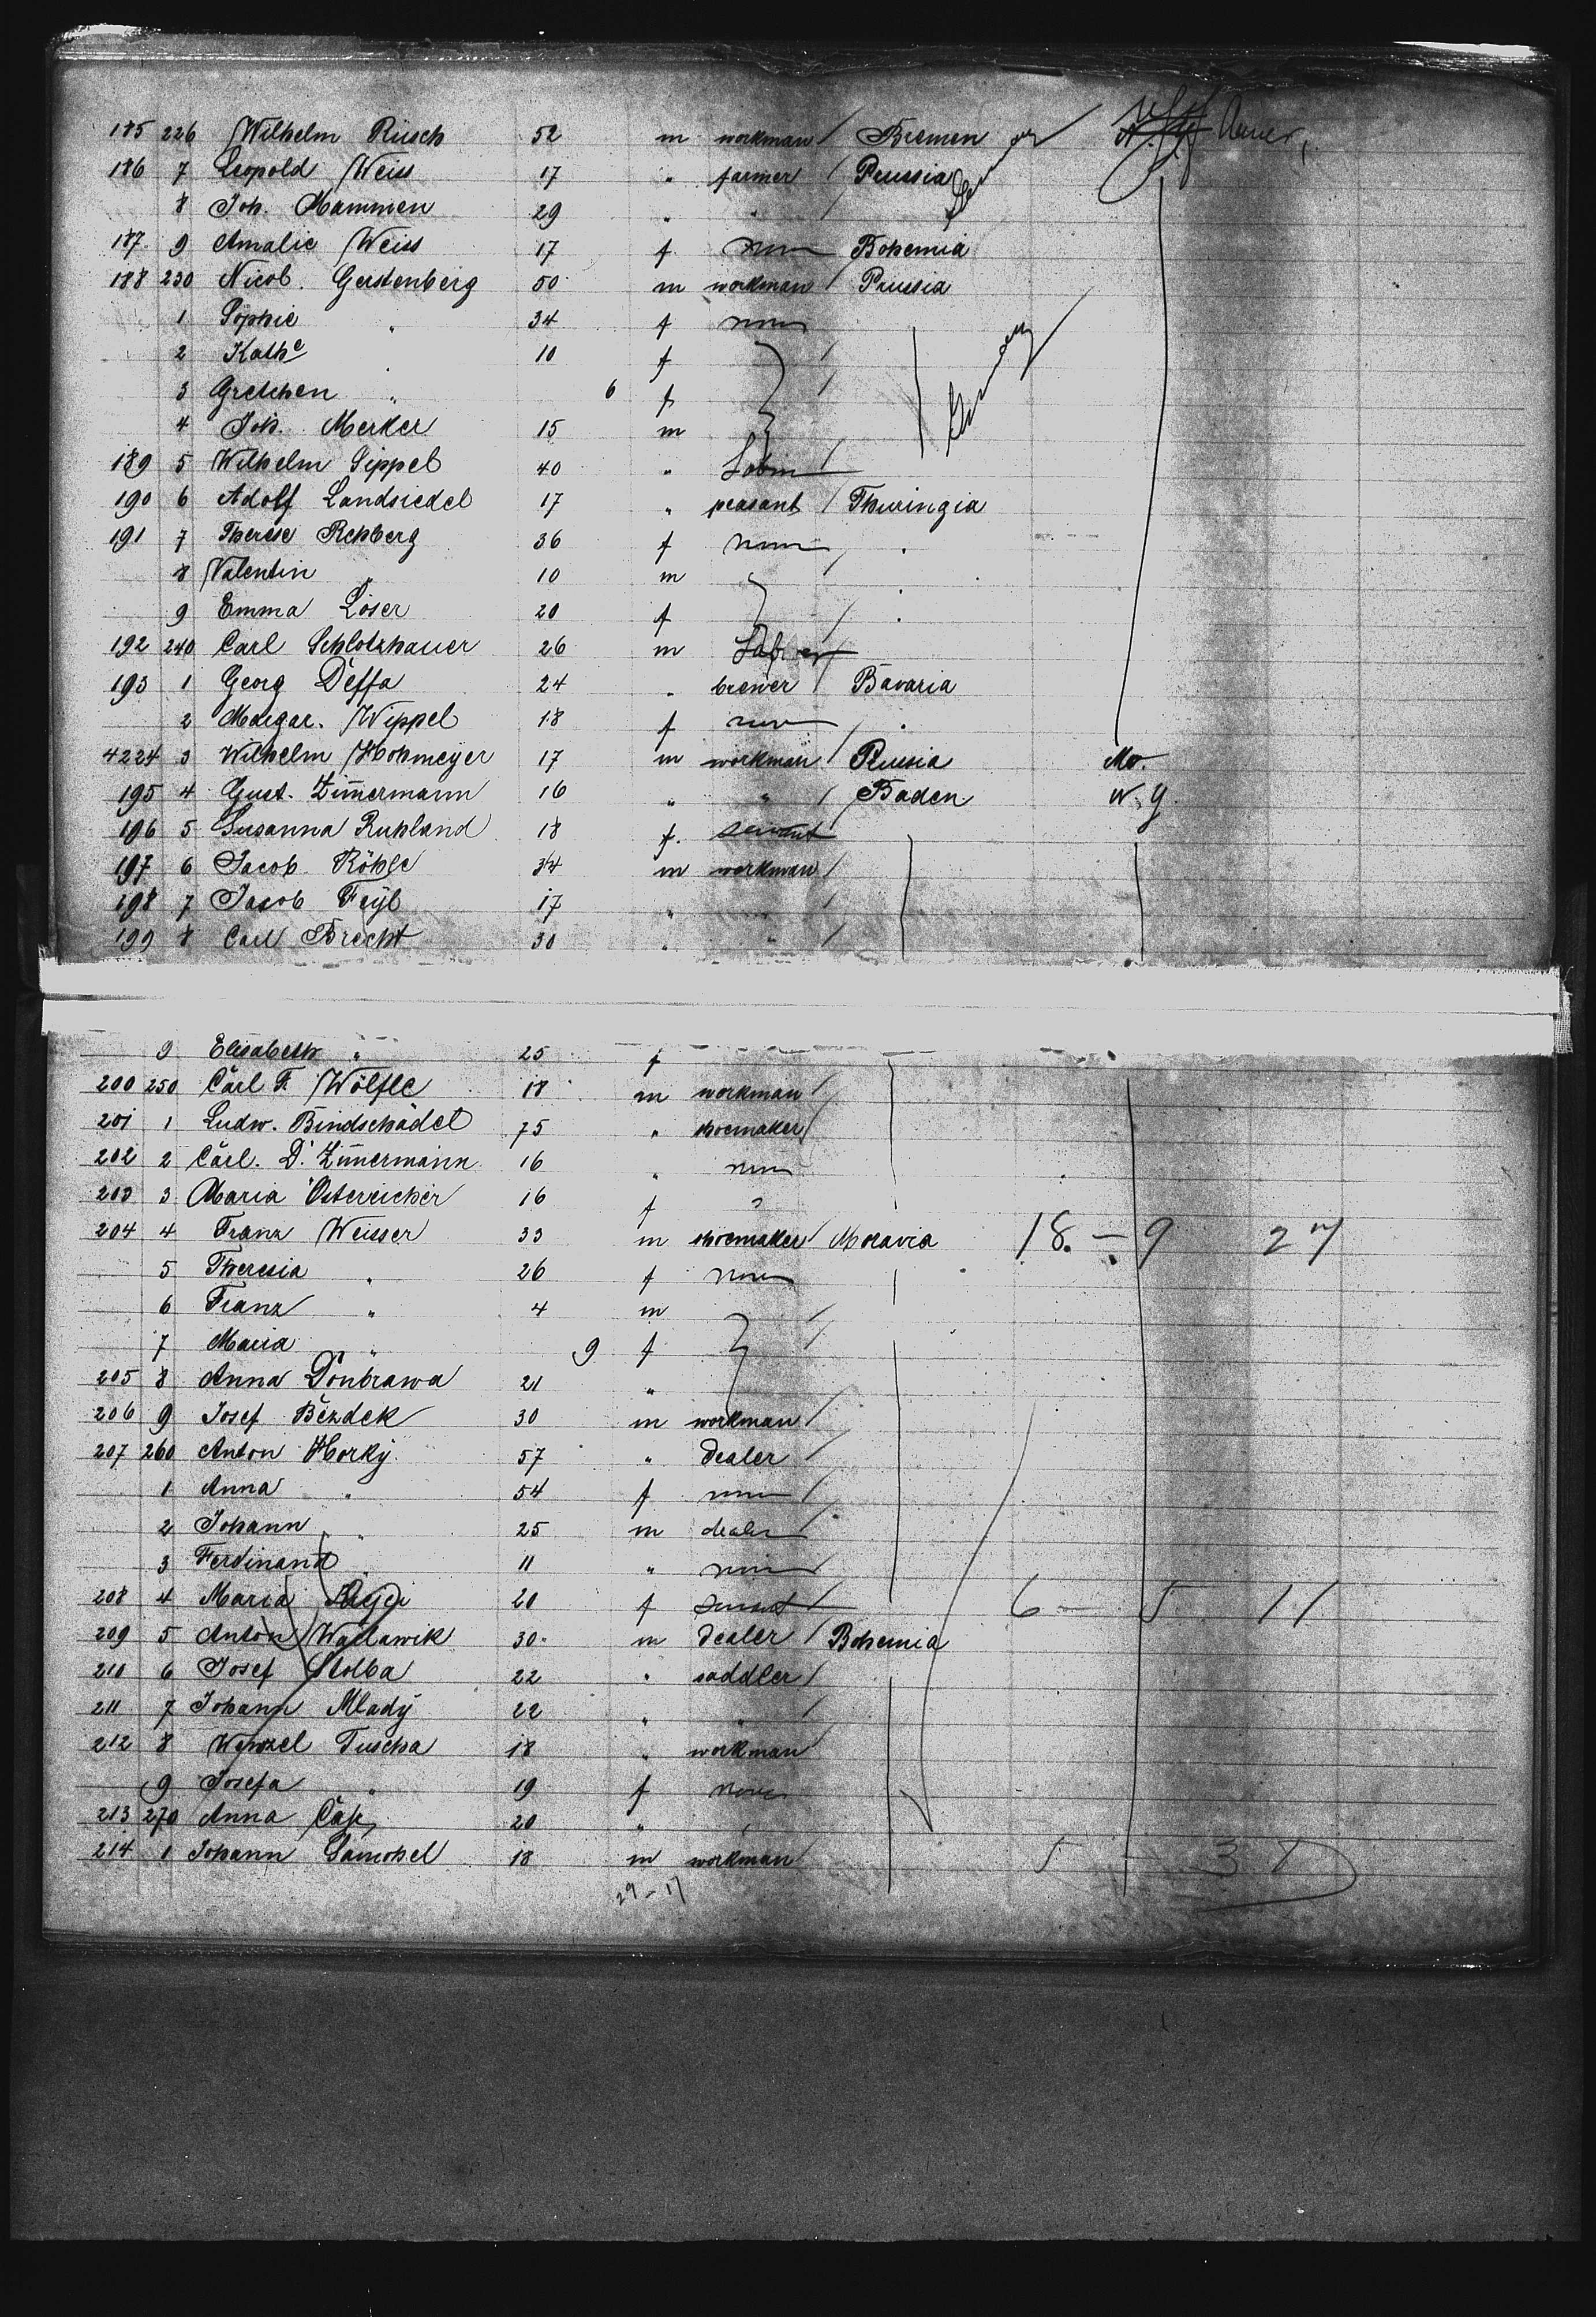 185 226 Wilhelm Rüsch 52 m workman / Bremen
186 7 Leopold Weiss 17 " farmer / Prussia
8 Joh. Mammen 29 " " / Germany
187 9 Amalie Weiss 17 f none Bohemia
188 230 Nicol. Gerstenberg 50 m workman / Prussia
1 Sophie " 34 f none
2 Kathe 10 f /
3 Gretchen " 6 f / Germany
4 Joh. Merker 15 m
189 5 Wilhelm Sippel 40 " /
190 6 Adolf Landsiedel 17 " peasant / Thuringia
191 7 Therese Rehberg 36 f none "
8 Valentin " 10 m /
9 Emma Löser 20 f / "
192 240 Carl Schlotzhauer 26 m Labrer
193 1 Georg Deffa 24 " brewer / Bavaria
2 Margar. Wippel 18 f none "
4224 3 Wilhelm Hohmeyer 17 m workman / Prussia Mo.
195 4 Gust. Zim̄ermann 16 " " / Baden N. Y.
196 5 Susanna Ruhland 18 f. servant
197 6 Jacob 34 m workman /
198 7 Jacob Feyl 17 " " /
199 8 Carl Brecht 30 " " /
9 Elisabeth " 25 f
200 250 Carl F. Wölfle 18 m workman /
201 1 Ludw. Bindschädel 75 " shoemaker /
202 2 Carl. D. Zim̄ermann 16 " none
203 3 Maria Östereicher 16 f "
204 4 Franz Weisser 33 m shoemaker / Moravia 18. — 9 27
5 Theresia " 26 f none
6 Franz " 4 m /
7 Maria " 9 f /
205 8 Anna Doubrawa 21 "
206 9 Josef Bezdek 30 m workman /
207 260 Anton Horky 57 " dealer /
1 Anna " 54 f none /
2 Johann " 25 m dealer
3 Ferdinand 11 " none
208 4 Maria 20 f servant 6 — 5 11
209 5 Anton Waclawik 30 m dealer / Bohemia
210 6 Josef Stolba 22 " saddler /
211 7 Johann Mlady 22 " " /
212 8 Wenzel Tuscha 18 " workman
9 Josefa " 19 f none
213 270 Anna 20 " "
214 1 Johann Samohel 18 m workman 5 — 3 8
29 - 17